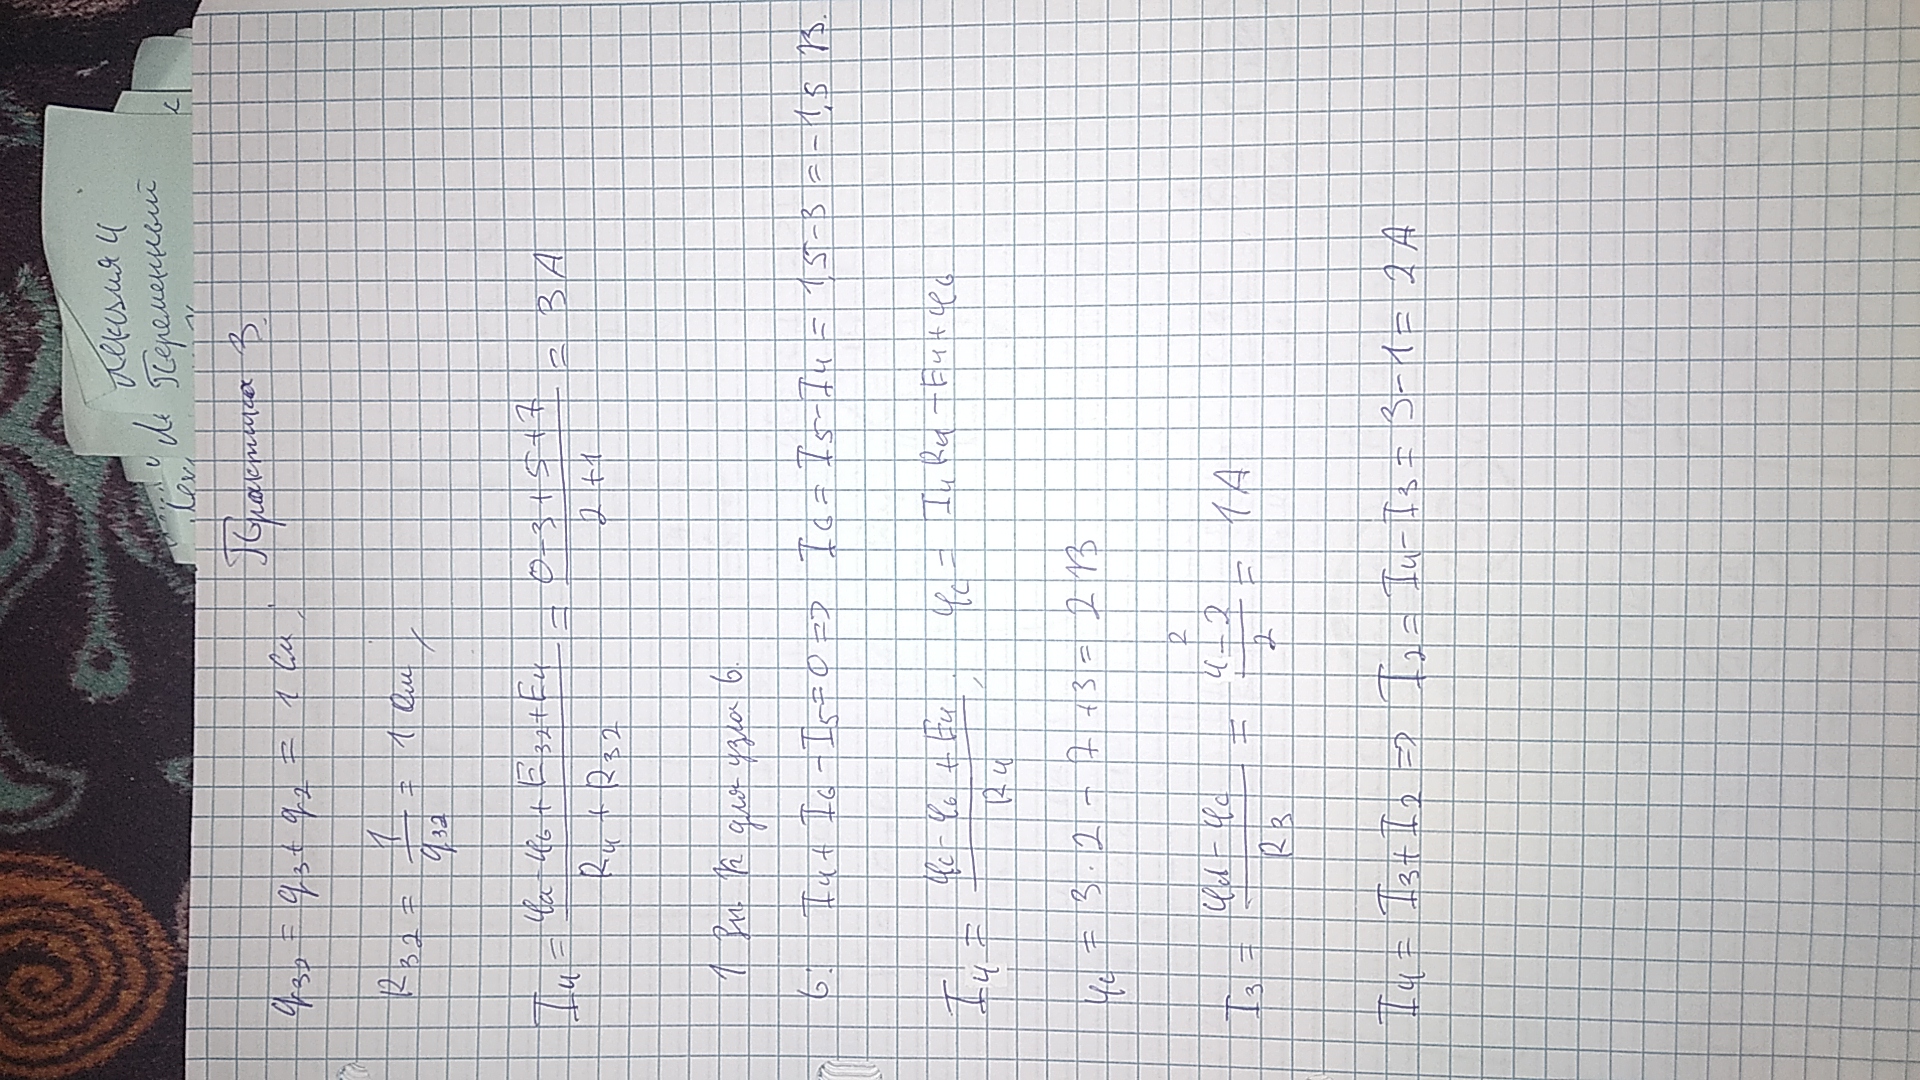 Лекция 4
Ле Переменный
Лек
Практика 3
q₃₂ = q₃ + q₂ = 1 См;
R₃₂ = 1/q₃₂ = 1 Ом,
I₄ = (φa - φb + E₃₂ + E₄)/(R₄ + R₃₂) = (0-3+5+7)/(2+1) = 3 A
1 Зн. К для узла b.
b: I₄ + I₆ - I₅ = 0 => I₆ = I₅ - I₄ = 1,5-3 = -1,5 В.
I₄ = (φc - φb + E₄)/R₄; φc = I₄R₄ - E₄ + φb
φc = 3·2 - 7 + 3 = 2 В
2
I₃ = (φd - φc)/R₃ = (4-2)/2 = 1 A
I₄ = I₃ + I₂ => I₂ = I₄ - I₃ = 3-1 = 2 A